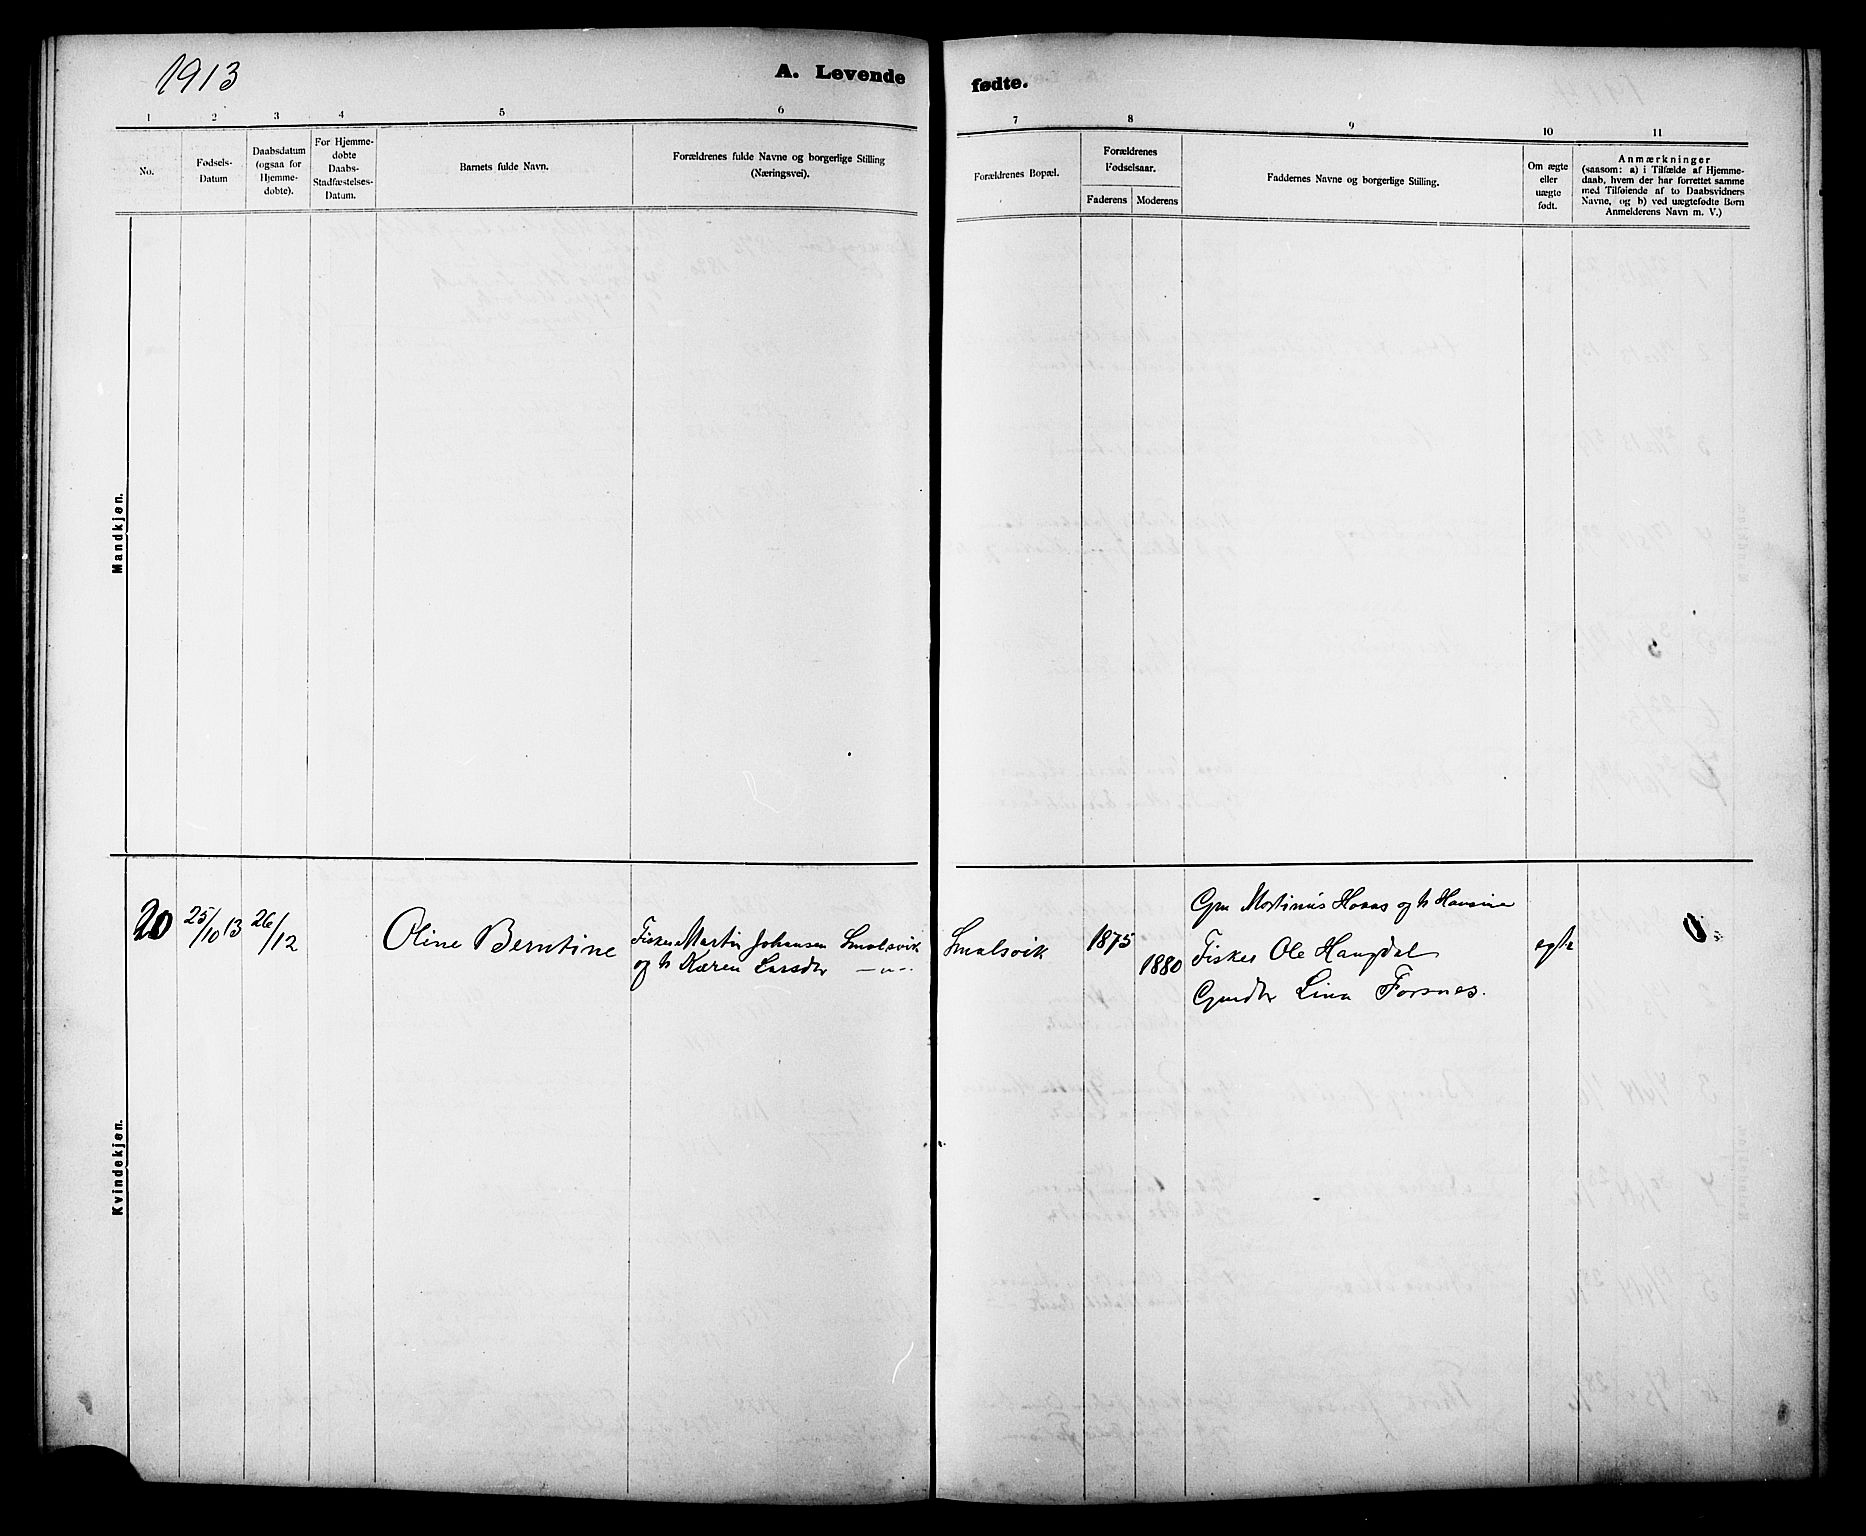 1913
A. Levende
fødte.
1 2 3 4 5 6
7 8 9 10 11
No.
Fødsels-
Datum
Daabsdatum
(ogsaa for
Hjemme-
døbte).
For Hjemme-
døbte
Daabs-
Stadfæstelses-
Datum.
Barnets fulde Navn.
Forældrenes fulde Navne og borgerlige Stilling
(Næringsvei).
Forældrenes Bopæl.
Forældrenes
Fødselsaar.
Faderens Moderens
Faddernes Navne og borgerlige Stilling.
Om ægte
eller
uægte
født.
Anmærkninger
(saasom: a) i Tilfælde af Hjemme-
daab, hvem der har forrettet samme
med Tilføiende af to Daabsvidners
Navne, og b) ved uægtefødte Børn
Anmelderens Navn m. V.)
Mandkjøn.
Kvindekjøn.
20
25/10 13
26/12
Oline Berntine
Fisker Martin Johansen Smalsvik
og h Karen Larsdtr —"—
Smalsvik
1875
1880
Gm Martinus Hoaas og h Hansine
Fisker Ole Haugdal
Gmdtr Lina Forsnes.
egte